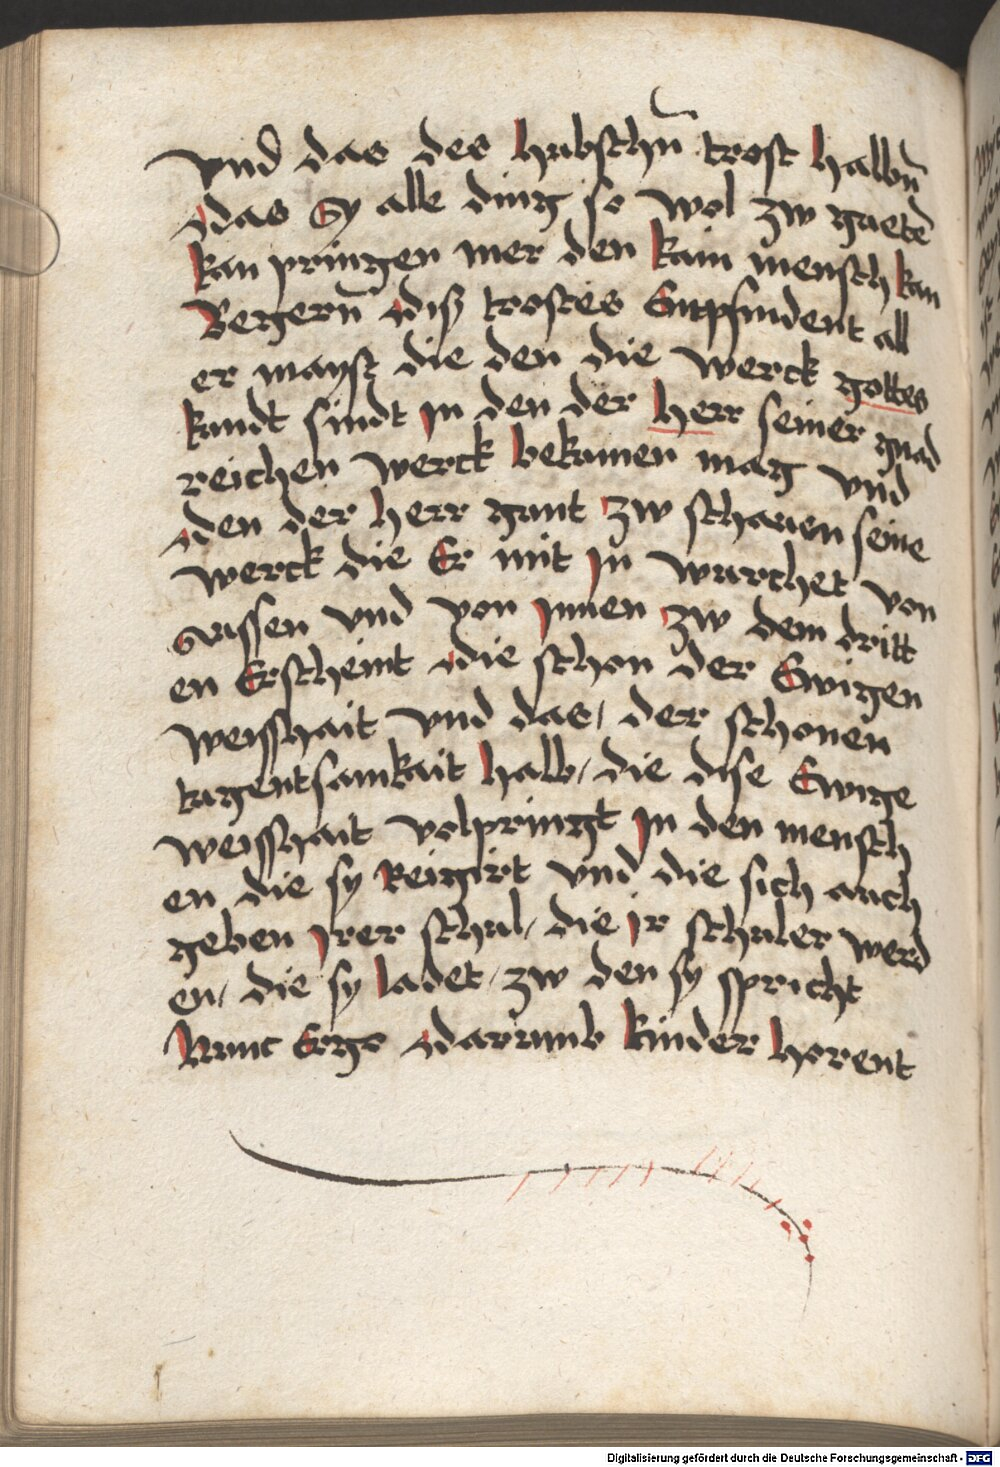 vnd das des hubschn̄ trost halbn̄
das Sy alle ding so wol zw guete
kan pringen mer den kain mensch kan
Begern̄ diß trostes Empfindent all
er mayst die den die werck gottes
kundt sindt In den der herr seiner gnad
reichen werck bekumen mag vnd
den der herr gunt zw schauen seine
werck die Er mit In wurchet von
aussen vnd von Innen zw dem dritt
en Erscheint die schon der Ewigen
weisshait vnd das / der schonen
tugentsamkait halb / die dise Ewige
weisshait volpringt In den mensch
en die sy Reigirt vnd die sich auch
geben Irer schul / die ir schuler werd
en / die sy ladet / zw den sy spricht
Nunc Ergo darumb kinder horent
Digitalisierung gefördert durch die Deutsche Forschungsgemeinschaft - DFG